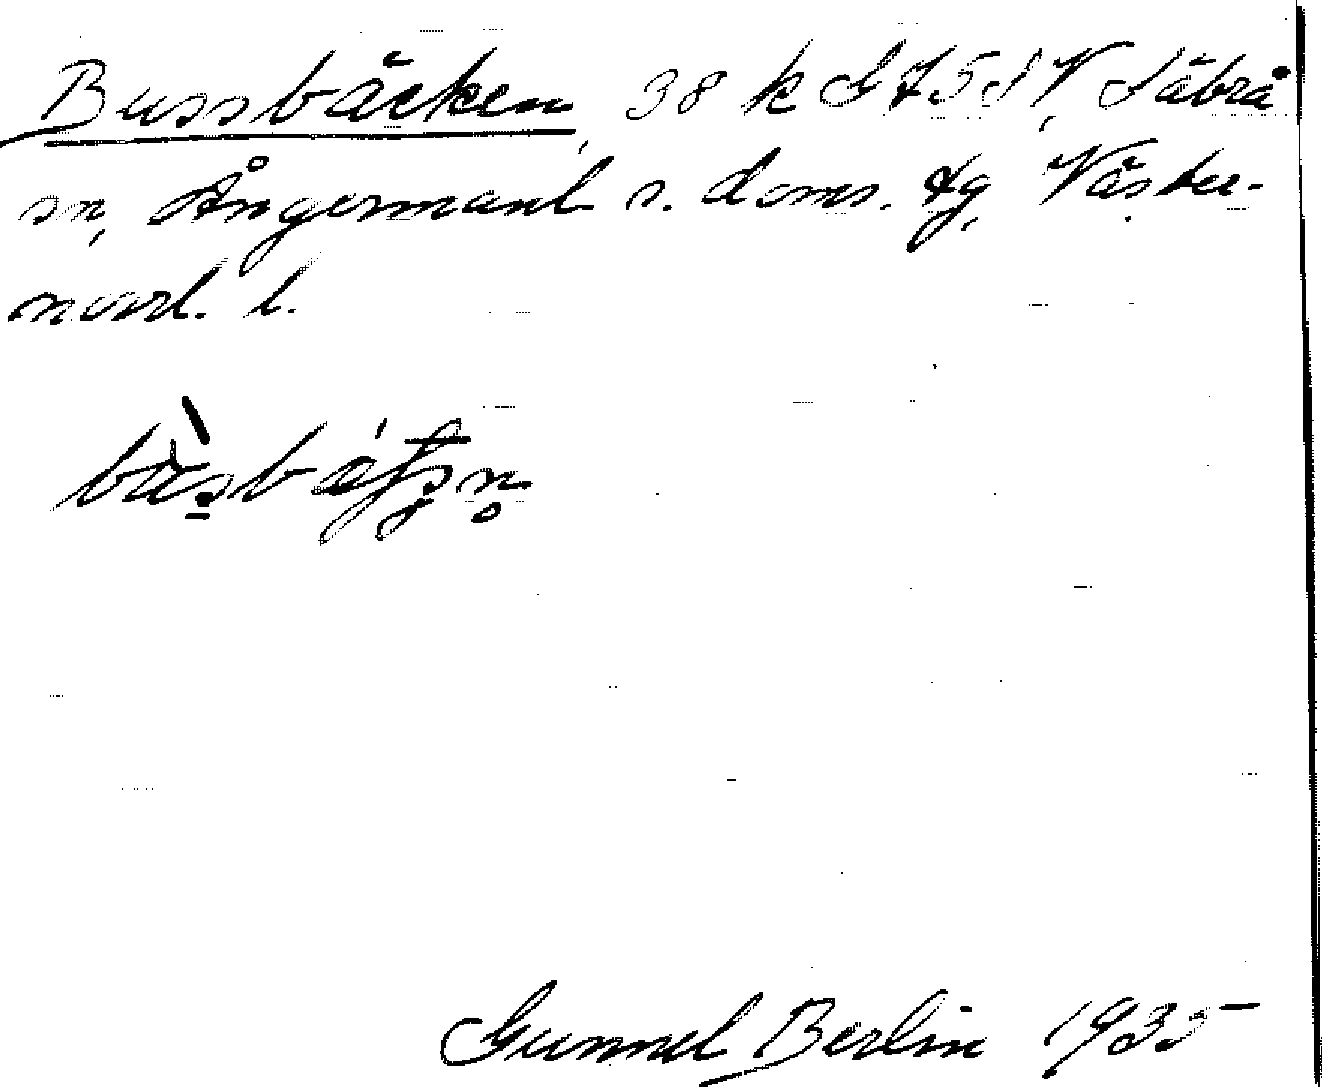 Bussbäcken, 38 k G 75 SV, Säbrå
sn, Ångermanl. s. doms. tg, Väster-
norrl. l.
Gunnel Berlin 1935